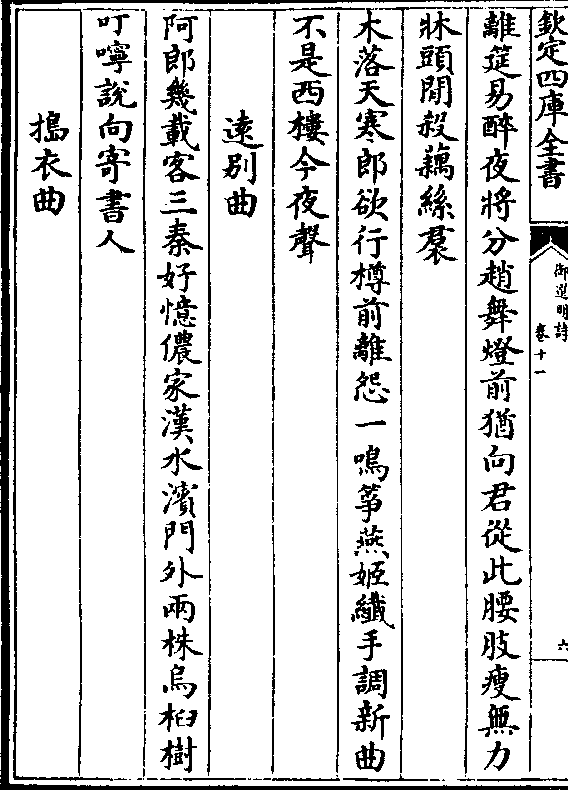 欽定四庫全書
御選明詩
卷十一
六
離筵易醉夜將分趙舞燈前猶向君從此腰肢瘦無力
牀頭閒殺藕絲裠
木落天寒郎欲行樽前離怨一鳴箏燕姬纖手調新曲
不是西樓今夜聲
遠別曲
阿郎幾載客三秦好憶儂家漢水濱門外兩株烏桕樹
叮嚀說向寄書人
搗衣曲